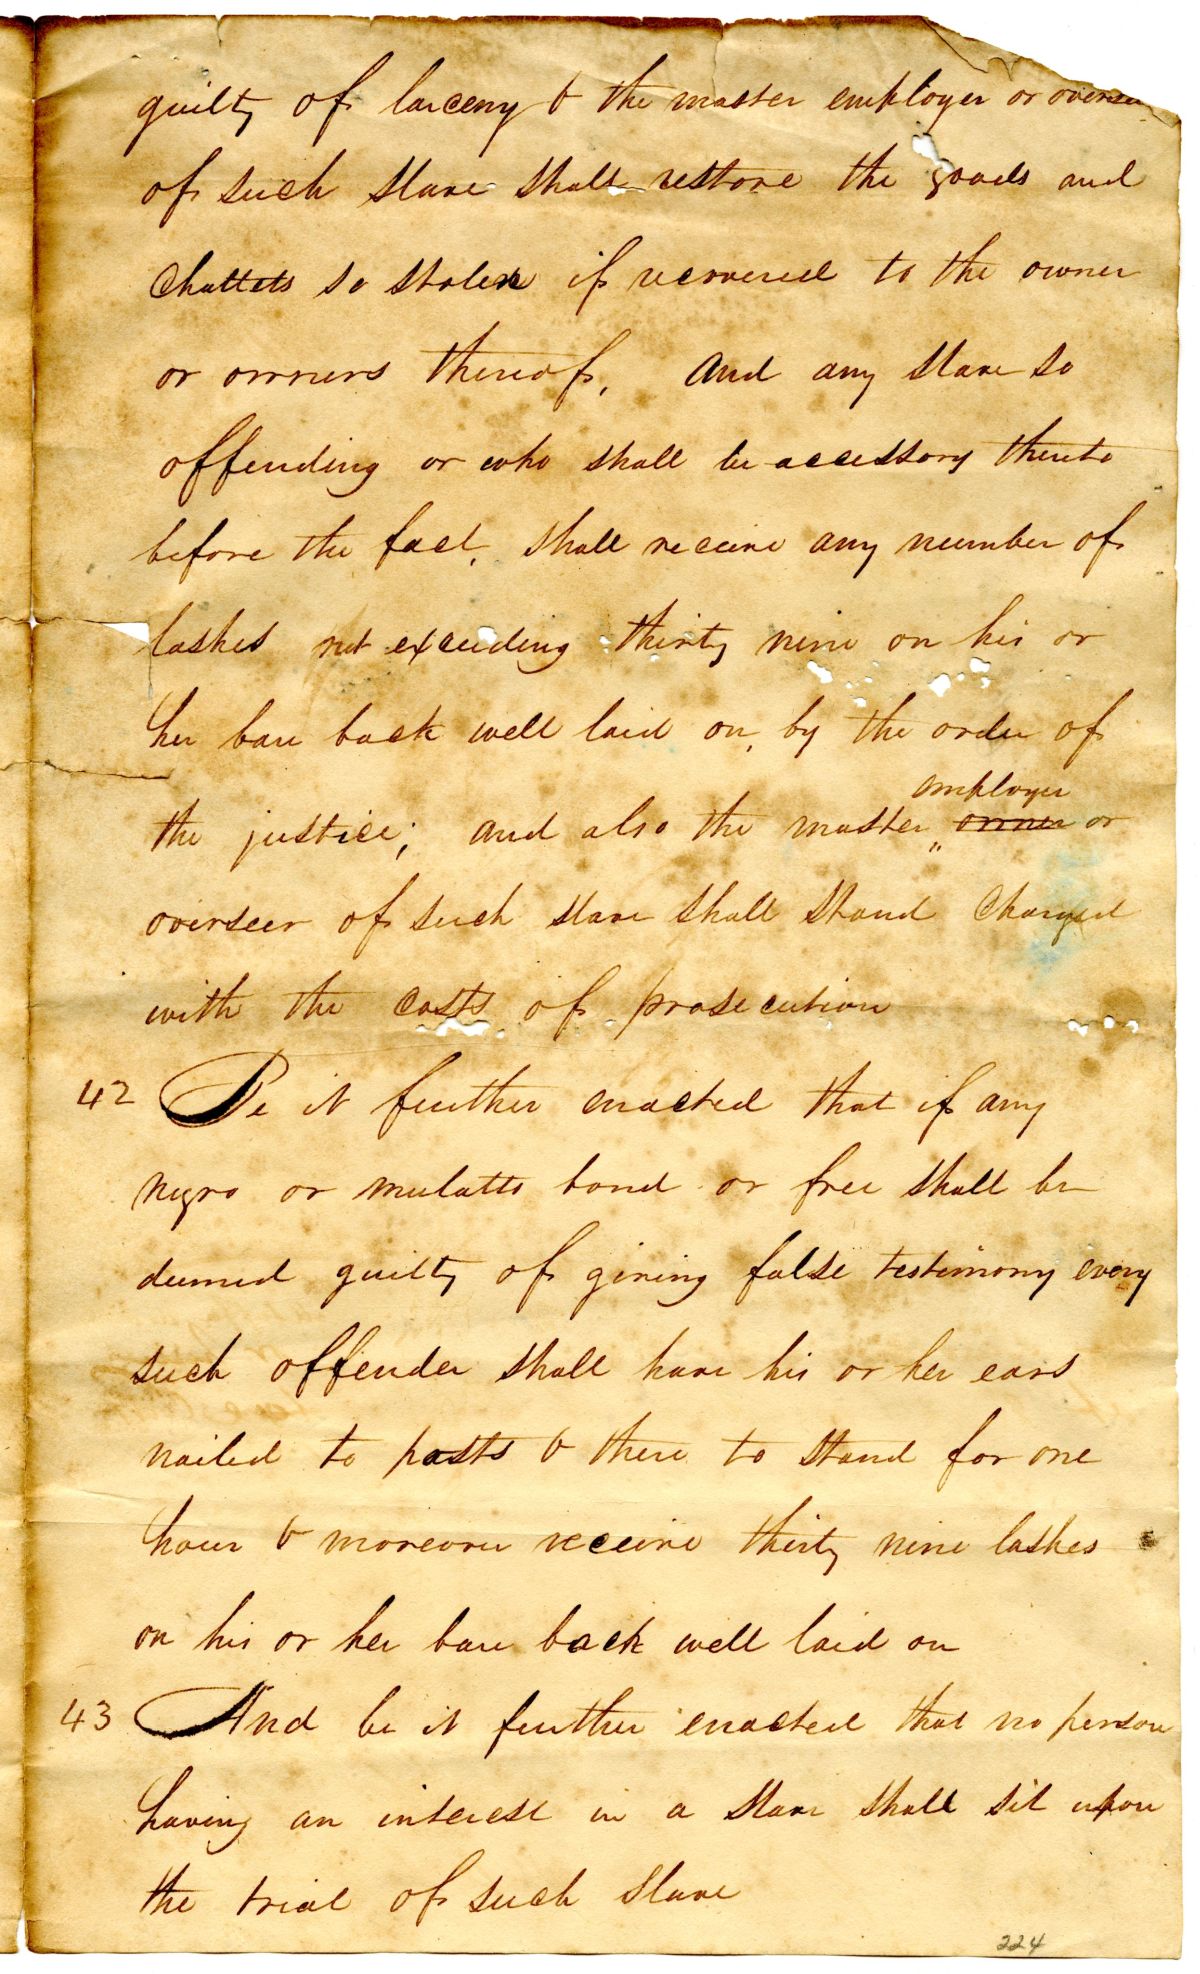 guilty of larceny & the master employer or overseer
of such slave shall restore the goods and
Chattels so stolen if recovered to the owner
or owners thereof, And any slave so
offending or who shall be accessory thereto
before the fact, shall receive any number of
lashes not exceeding thirty nine on his or
her bare back well laid on, by the order of
the justice; and also the master, employer owner or
overseer of such slave shall stand Charged
with the costs of prosecution
42 Be it further enacted that if any
negro or mulatto bond or free shall be
deemed guilty of giving false testimony every
such offender shall have his or her ears
nailed to posts & there to stand for one
hour & moreover receive thirty nine lashes
on his or her bare back well laid on
43 And be it further enacted that no person
having an interest in a slave shall sit upon
the trial of such slave
224